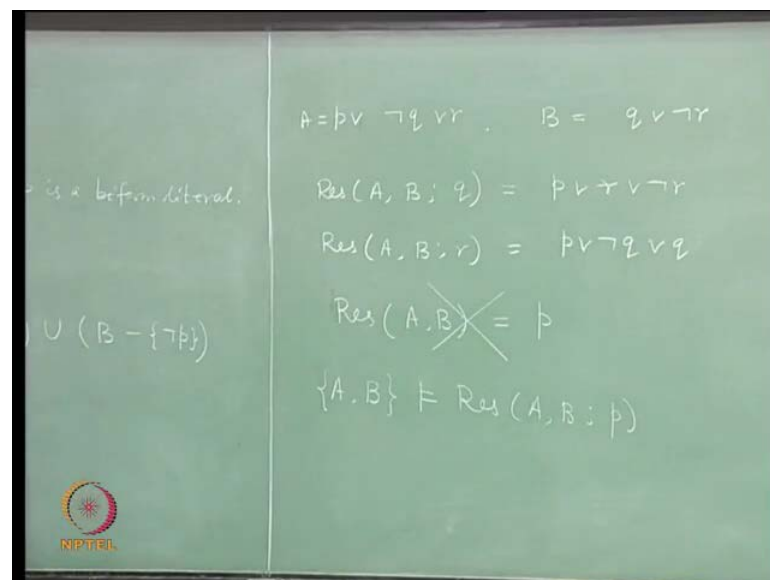 is a biform literal.
∪ (B − {¬p})
A = p ∨ ¬q ∨ r . B = q ∨ ¬r
Res(A, B; q) = p ∨ r ∨ ¬r
Res(A, B; r) = p ∨ ¬q ∨ q
Res(A, B) = p
{A, B} ⊨ Res(A, B; p)
NPTEL